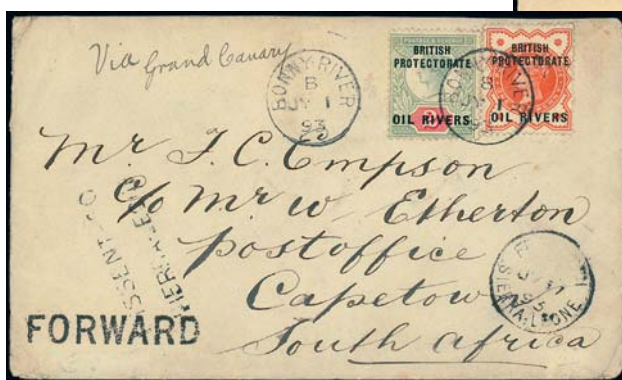 Via Grand Canary
BONNY RIVER
B
JY 1
93
BRITISH
PROTECTORATE
OIL RIVERS
BONNY RIVER
B
1
BRITISH
PROTECTORATE
OIL RIVERS
Mr
c/o Mr W Etherton
Postoffice
Capetown
South Africa
SIERRA-LEONE
FORWARD